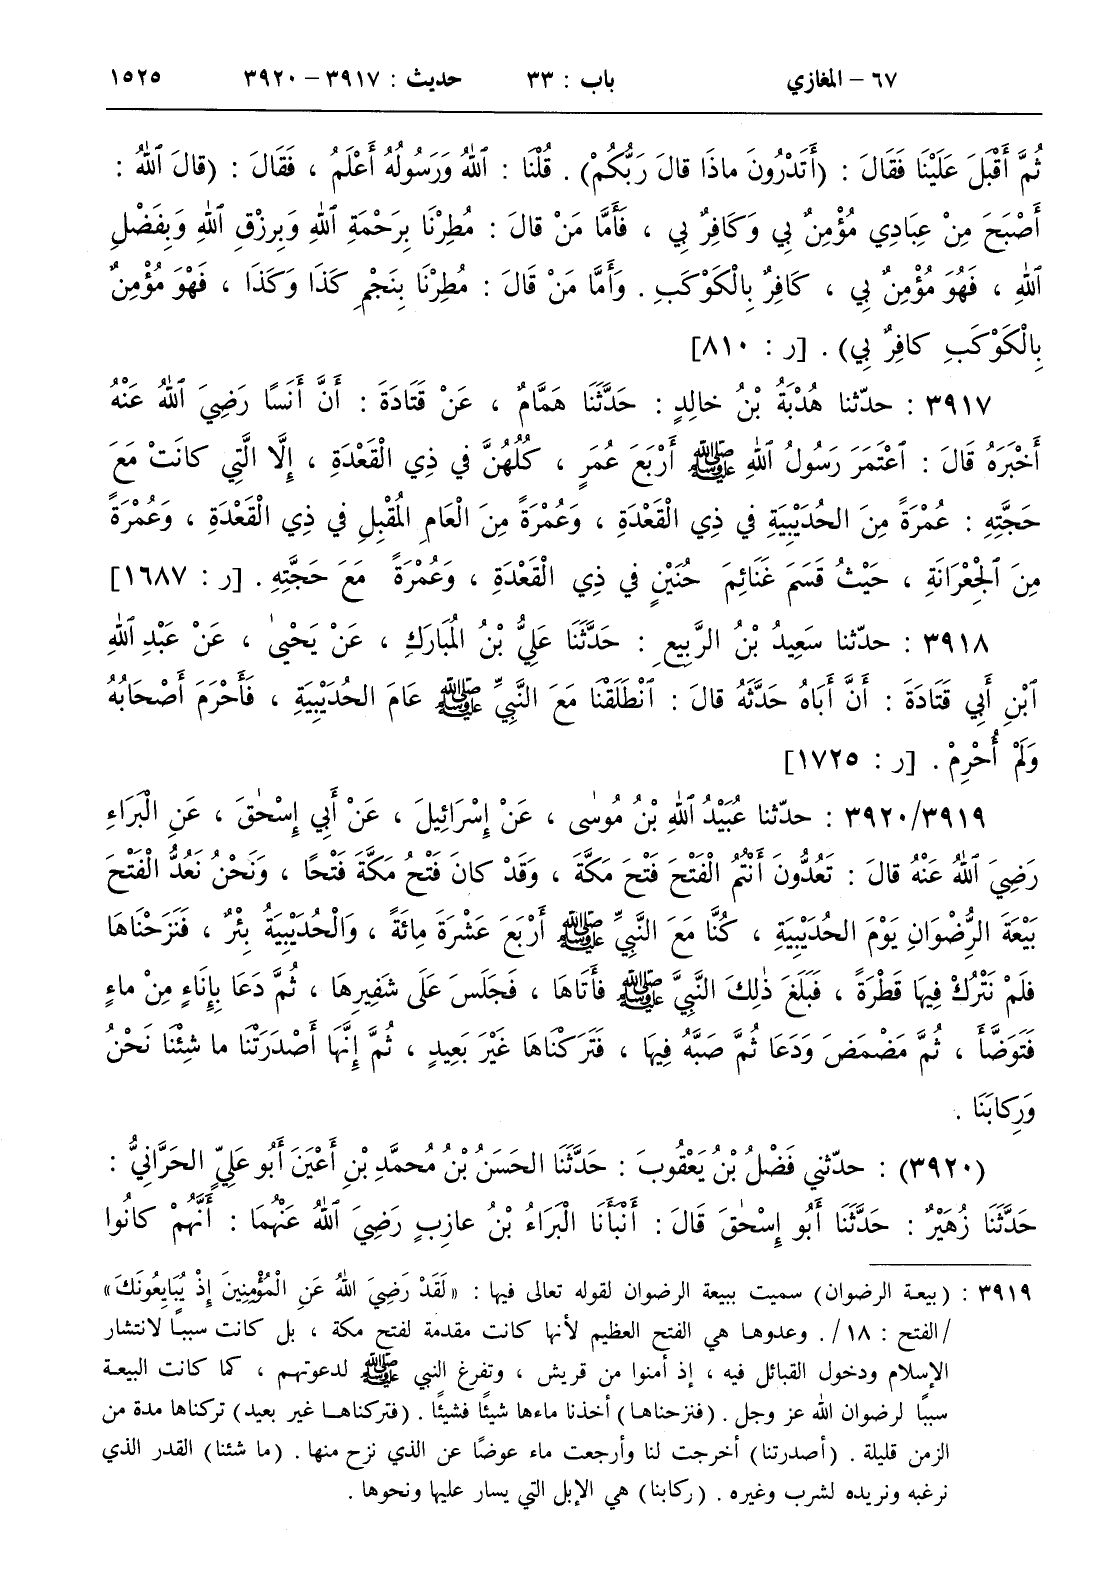 ٦٧- المغازي باب : ٣٣ حديث : ٣٩١٧ – ٣٩٢٠ ١٥٢٥
ثُمَّ أَقْبَلَ عَلَيْنَا فَقَالَ : (أَتَدْرُونَ ماذَا قالَ رَبُّكُمْ) . قُلْنَا : ٱللهُ وَرَسُولُهُ أَعْلَمُ ، فَقَالَ : (قالَ ٱللهُ :
أَصْبَحَ مِنْ عِبَادِي مُؤْمِنٌ بِي وَكَافِرٌ بِي ، فَأَمَّا مَنْ قالَ : مُطِرْنَا بِرَحْمَةِ ٱللهِ وَبِرِزْقِ ٱللهِ وَبِفَضْلِ
ٱللهِ ، فَهُوَ مُؤْمِنٌ بِي ، كَافِرٌ بِالْكَوْكَبِ . وَأَمَّا مَنْ قَالَ : مُطِرْنَا بِنَجْمِ كَذَا وَكَذَا ، فَهْوَ مُؤْمِنٌ
بِالْكَوْكَبِ كافِرٌ بِي) . [ر : ٨١٠]
٣٩١٧ : حدّثنا هُدْبَةُ بْنُ خالِدٍ : حَدَّثَنَا هَمَّامٌ ، عَنْ قَتَادَةَ : أَنَّ أَنَسًا رَضِيَ ٱللهُ عَنْهُ
أَخْبَرَهُ قالَ : ٱعْتَمَرَ رَسُولُ ٱللهِ ﷺ أَرْبَعَ عُمَرٍ ، كُلُّهُنَّ في ذِي الْقَعْدَةِ ، إِلَّا الَّتِي كانَتْ مَعَ
حَجَّتِهِ : عُمْرَةً مِنَ الحُدَيْبِيَةِ في ذِي الْقَعْدَةِ ، وَعُمْرَةً مِنَ الْعَامِ المُقْبِلِ في ذِي الْقَعْدَةِ ، وَعُمْرَةً
مِنَ الْجِعْرَانَةِ ، حَيْثُ قَسَمَ غَنَائِمَ حُنَيْنٍ في ذِي الْقَعْدَةِ ، وَعُمْرَةً مَعَ حَجَّتِهِ . [ر : ١٦٨٧]
٣٩١٨ : حدّثنا سَعِيدُ بْنُ الرَّبِيعِ : حَدَّثَنَا عَلِيُّ بْنُ المُبَارَكِ ، عَنْ يَحْيىٰ ، عَنْ عَبْدِ ٱللهِ
ٱبْنِ أَبِي قَتَادَةَ : أَنَّ أَبَاهُ حَدَّثَهُ قالَ : ٱنْطَلَقْنَا مَعَ النَّبِيِّ ﷺ عامَ الحُدَيْبِيَةِ ، فَأَحْرَمَ أَصْحَابُهُ
وَلَمْ أُحْرِمْ . [ر : ١٧٢٥]
٣٩٢٠/٣٩١٩ : حدّثنا عُبَيْدُ ٱللهِ بْنُ مُوسٰى ، عَنْ إِسْرَائِيلَ ، عَنْ أَبِي إِسْحٰقَ ، عَنِ الْبَرَاءِ
رَضِيَ ٱللهُ عَنْهُ قالَ : تَعُدُّونَ أَنْتُمُ الْفَتْحَ فَتْحَ مَكَّةَ ، وَقَدْ كانَ فَتْحُ مَكَّةَ فَتْحًا ، وَنَحْنُ نَعُدُّ الْفَتْحَ
بَيْعَةَ الرِّضْوَانِ يَوْمَ الحُدَيْبِيَةِ ، كُنَّا مَعَ النَّبِيِّ ﷺ أَرْبَعَ عَشْرَةَ مِائَةً ، وَالْحُدَيْبِيَةُ بِئْرٌ ، فَنَزَحْنَاهَا
فَلَمْ نَتْرُكْ فِيهَا قَطْرَةً ، فَبَلَغَ ذٰلِكَ النَّبِيَّ ﷺ فَأَتَاهَا ، فَجَلَسَ عَلَى شَفِيرِهَا ، ثُمَّ دَعَا بِإِنَاءٍ مِنْ ماءٍ
فَتَوَضَّأَ ، ثُمَّ مَضْمَضَ وَدَعَا ثُمَّ صَبَّهُ فِيهَا ، فَتَرَكْنَاهَا غَيْرَ بَعِيدٍ ، ثُمَّ إِنَّهَا أَصْدَرَتْنَا ما شِئْنَا نَحْنُ
وَرِكابَنَا .
(٣٩٢٠) : حدّثني فَضْلُ بْنُ يَعْقُوبَ : حَدَّثَنَا الحَسَنُ بْنُ مُحمَّدِ بْنِ أَعْيَنَ أَبُو عَلِيٍّ الحَرَّانِيُّ :
حَدَّثَنَا زُهَيْرٌ : حَدَّثَنَا أَبُو إِسْحٰقَ قَالَ : أَنْبَأَنَا الْبَرَاءُ بْنُ عازِبٍ رَضِيَ ٱللهُ عَنْهُمَا : أَنَّهُمْ كانُوا
٣٩١٩ : (بيعة الرضوان) سميت ببيعة الرضوان لقوله تعالى فيها : «لَقَدْ رَضِيَ اللهُ عَنِ الْمُؤْمِنِينَ إِذْ يُبَايِعُونَكَ»
/الفتح : ١٨/. وعدوها هي الفتح العظيم لأنها كانت مقدمة لفتح مكة ، بل كانت سببًا لانتشار
الإسلام ودخول القبائل فيه ، إذ أمنوا من قريش ، وتفرغ النبي ﷺ لدعوتهم ، كما كانت البيعة
سببًا لرضوان الله عز وجل . (فنزحناها) أخذنا ماءها شيئًا فشيئًا . (فتركناها غير بعيد) تركناها مدة من
الزمن قليلة . (أصدرتنا) أخرجت لنا وأرجعت ماء عوضًا عن الذي نزح منها . (ما شئنا) القدر الذي
نرغبه ونريده لشرب وغيره . (ركابنا) هي الإبل التي يسار عليها ونحوها .